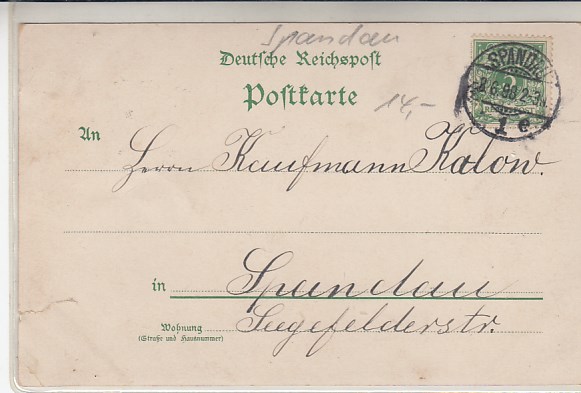 Spandau
Deutsche Reichspost
Postkarte
14,-
SPANDAU
6.99 2-3N
1 e
An
Herrn Kaufmann Kalow.
in Spandau
Wohnung
(Straße und Hausnummer)
Seegefelderstr.